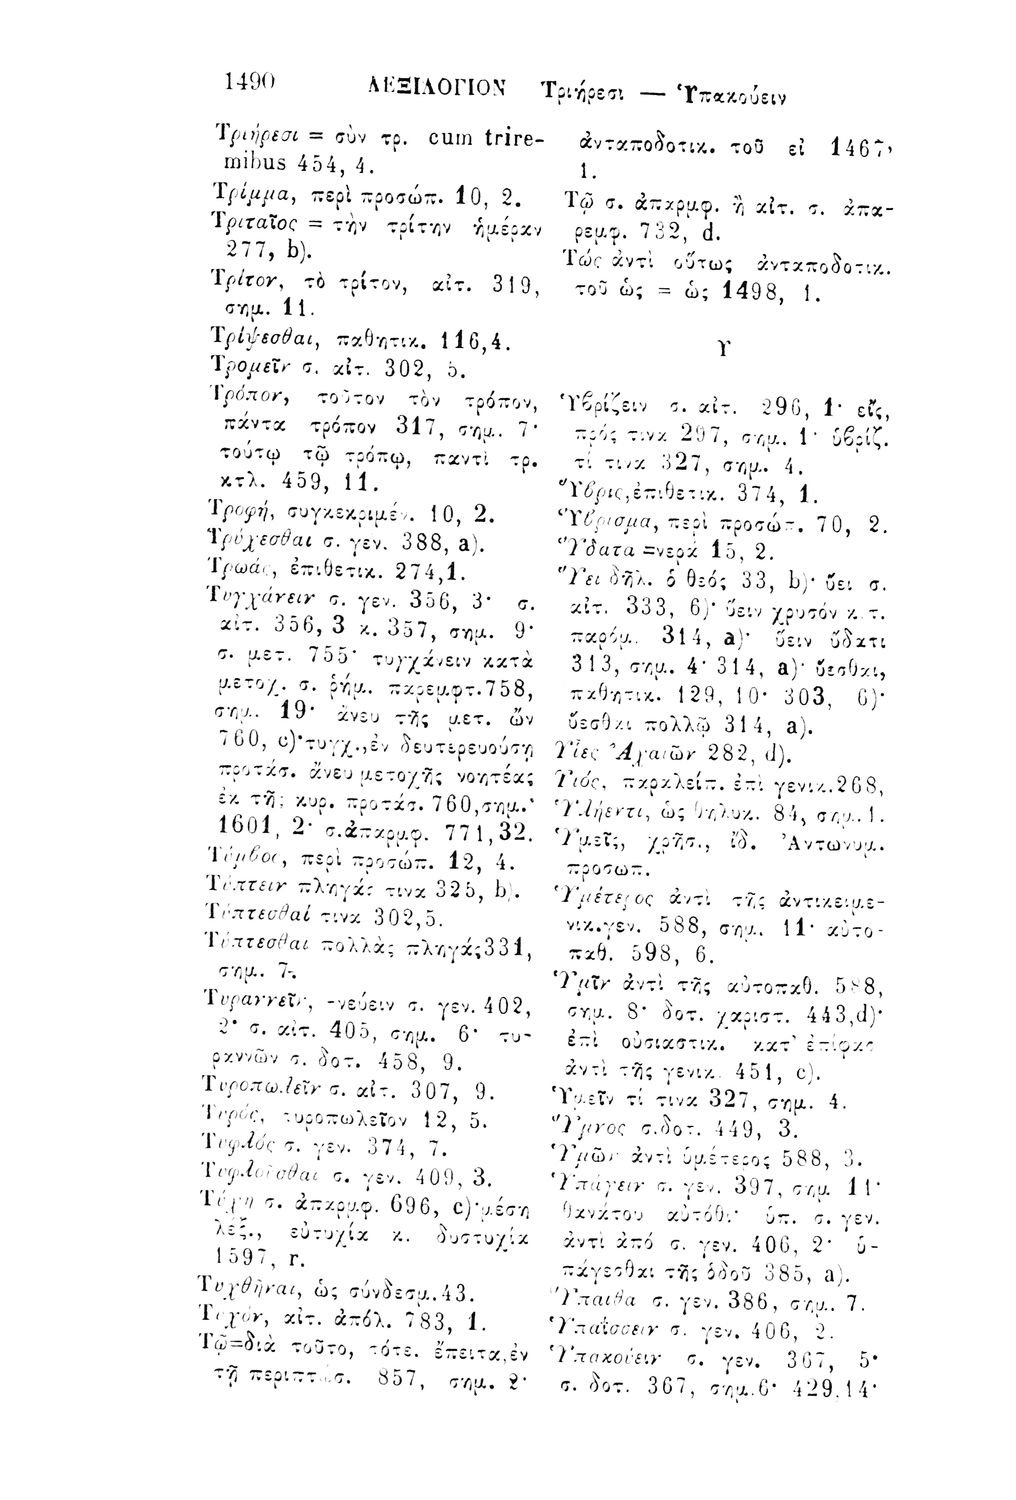 1490 ΛΕΞΙΛΟΓΙΟΝ Τριήρεσι — Ὑπακούειν
Τριήρεσι = σὺν τρ. cum trire-
mibus 454, 4.
Τρίμμα, περὶ προσώπ. 10, 2.
Τριταῖος = τὴν τρίτην ἡμέραν
277, b).
Τρίτον, τὸ τρίτον, αἰτ. 319,
σημ. 11.
Τρίψεσθαι, παθητικ. 116,4.
Τρομεῖν σ. αἰτ. 302, 5.
Τρόπον, τοῦτον τὸν τρόπον,
πάντα τρόπον 317, σημ. 7·
τούτῳ τῷ τρόπῳ, παντὶ τρ.
κτλ. 459, 11.
Τροφή, συγκεκριμέν. 10, 2.
Τρύχεσθαι σ. γεν. 388, a).
Τρωάς, ἐπιθετικ. 274,1.
Τυγχάνειν σ. γεν. 356, 3· σ.
αἰτ. 356, 3 κ. 357, σημ. 9·
σ. μετ. 755· τυγχάνειν κατὰ
μετοχ. σ. ῥήμ. παρεμφτ.758,
σημ. 19· ἄνευ τῆς μετ. ὢν
760, c)·τυγχ.,ἐν δευτερευούσῃ
προτάσ. ἄνευ μετοχῆς νοητέας
ἐκ τῆς κυρ. προτάσ. 760,σημ.·
1601, 2· σ.ἀπαρμφ. 771,32.
Τύμβος, περὶ προσώπ. 12, 4.
Τύπτειν πληγάς τινα 325, b).
Τύπτεσθαί τινα 302,5.
Τύπτεσθαι πολλὰς πληγάς331,
σημ. 7.
Τυραννεῖν, -νεύειν σ. γεν. 402,
2· σ. αἰτ. 405, σημ. 6· τυ-
ραννῶν σ. δοτ. 458, 9.
Τυροπωλεῖν σ. αἰτ. 307, 9.
Τυρός, τυροπωλεῖον 12, 5.
Τυφλός σ. γεν. 374, 7.
Τυφλοῦσθαι σ. γεν. 409, 3.
Τύχη σ. ἀπαρμφ. 696, c)·μέση
λέξ., εὐτυχία κ. δυστυχία
1597, r.
Τυχθῆναι, ὡς σύνδεσμ.43.
Τυχόν, αἰτ. ἀπόλ. 783, 1.
Τῷ=διὰ τοῦτο, τότε. ἔπειτα,ἐν
τῇ περιπτώσ. 857, σημ. 2·
ἀνταποδοτικ. τοῦ εἰ 1467,
1.
Τῷ σ. ἀπαρμφ. ἢ αἰτ. σ. ἀπα-
ρεμφ. 732, d.
Τώς ἀντὶ οὕτως ἀνταποδοτικ.
τοῦ ὡς = ὡς 1498, 1.
Υ
Ὑβρίζειν σ. αἰτ. 296, 1· εἴς,
πρός τινα 297, σημ. 1· ὑβρίζ.
τί τινα 327, σημ. 4.
Ὕβρις,ἐπιθετικ. 374, 1.
Ὕβρισμα, περὶ προσώπ. 70, 2.
Ὕδατα =νερά 15, 2.
Ὕει δῆλ. ὁ θεός 33, b)· ὕει σ.
αἰτ. 333, 6)· ὕειν χρυσόν κ.τ.
παρόμ. 314, a)· ὕειν ὕδατι
313, σημ. 4· 314, a)· ὕεσθαι,
παθητικ. 129, 10· 303, 6)·
ὕεσθαι πολλῷ 314, a).
Υἷες Ἀχαιῶν 282, d).
Υἱός, παραλείπ. ἐπὶ γενικ.268,
Ὑλήεντι, ὡς θηλυκ. 84, σημ.1.
Ὑμεῖς, χρῆσ., ἰδ. Ἀντωνυμ.
προσωπ.
Ὑμέτερος ἀντὶ τῆς ἀντικειμε-
νικ.γεν. 588, σημ. 11· αὐτο-
παθ. 598, 6.
Ὑμῖν ἀντὶ τῆς αὐτοπαθ. 588,
σημ. 8· δοτ. χαριστ. 443,d)·
ἐπὶ οὐσιαστικ. κατ' ἐπίφας
ἀντὶ τῆς γενικ. 451, c).
Ὑμεῖν τί τινα 327, σημ. 4.
Ὕμνος σ.δοτ. 449, 3.
Ὑμῶν ἀντὶ ὑμέτερος 588, 3.
Ὑπάγειν σ. γεν. 397, σημ. 11·
θανάτου αὐτόθι· ὑπ. σ. γεν.
ἀντὶ ἀπό σ. γεν. 406, 2· ὑ-
πάγεσθαι τῆς ὁδοῦ 385, a).
Ὕπαιθα σ. γεν. 386, σημ. 7.
Ὑπαΐσσειν σ. γεν. 406, 2.
Ὑπακούειν σ. γεν. 367, 5·
σ. δοτ. 367, σημ.6· 429,14·